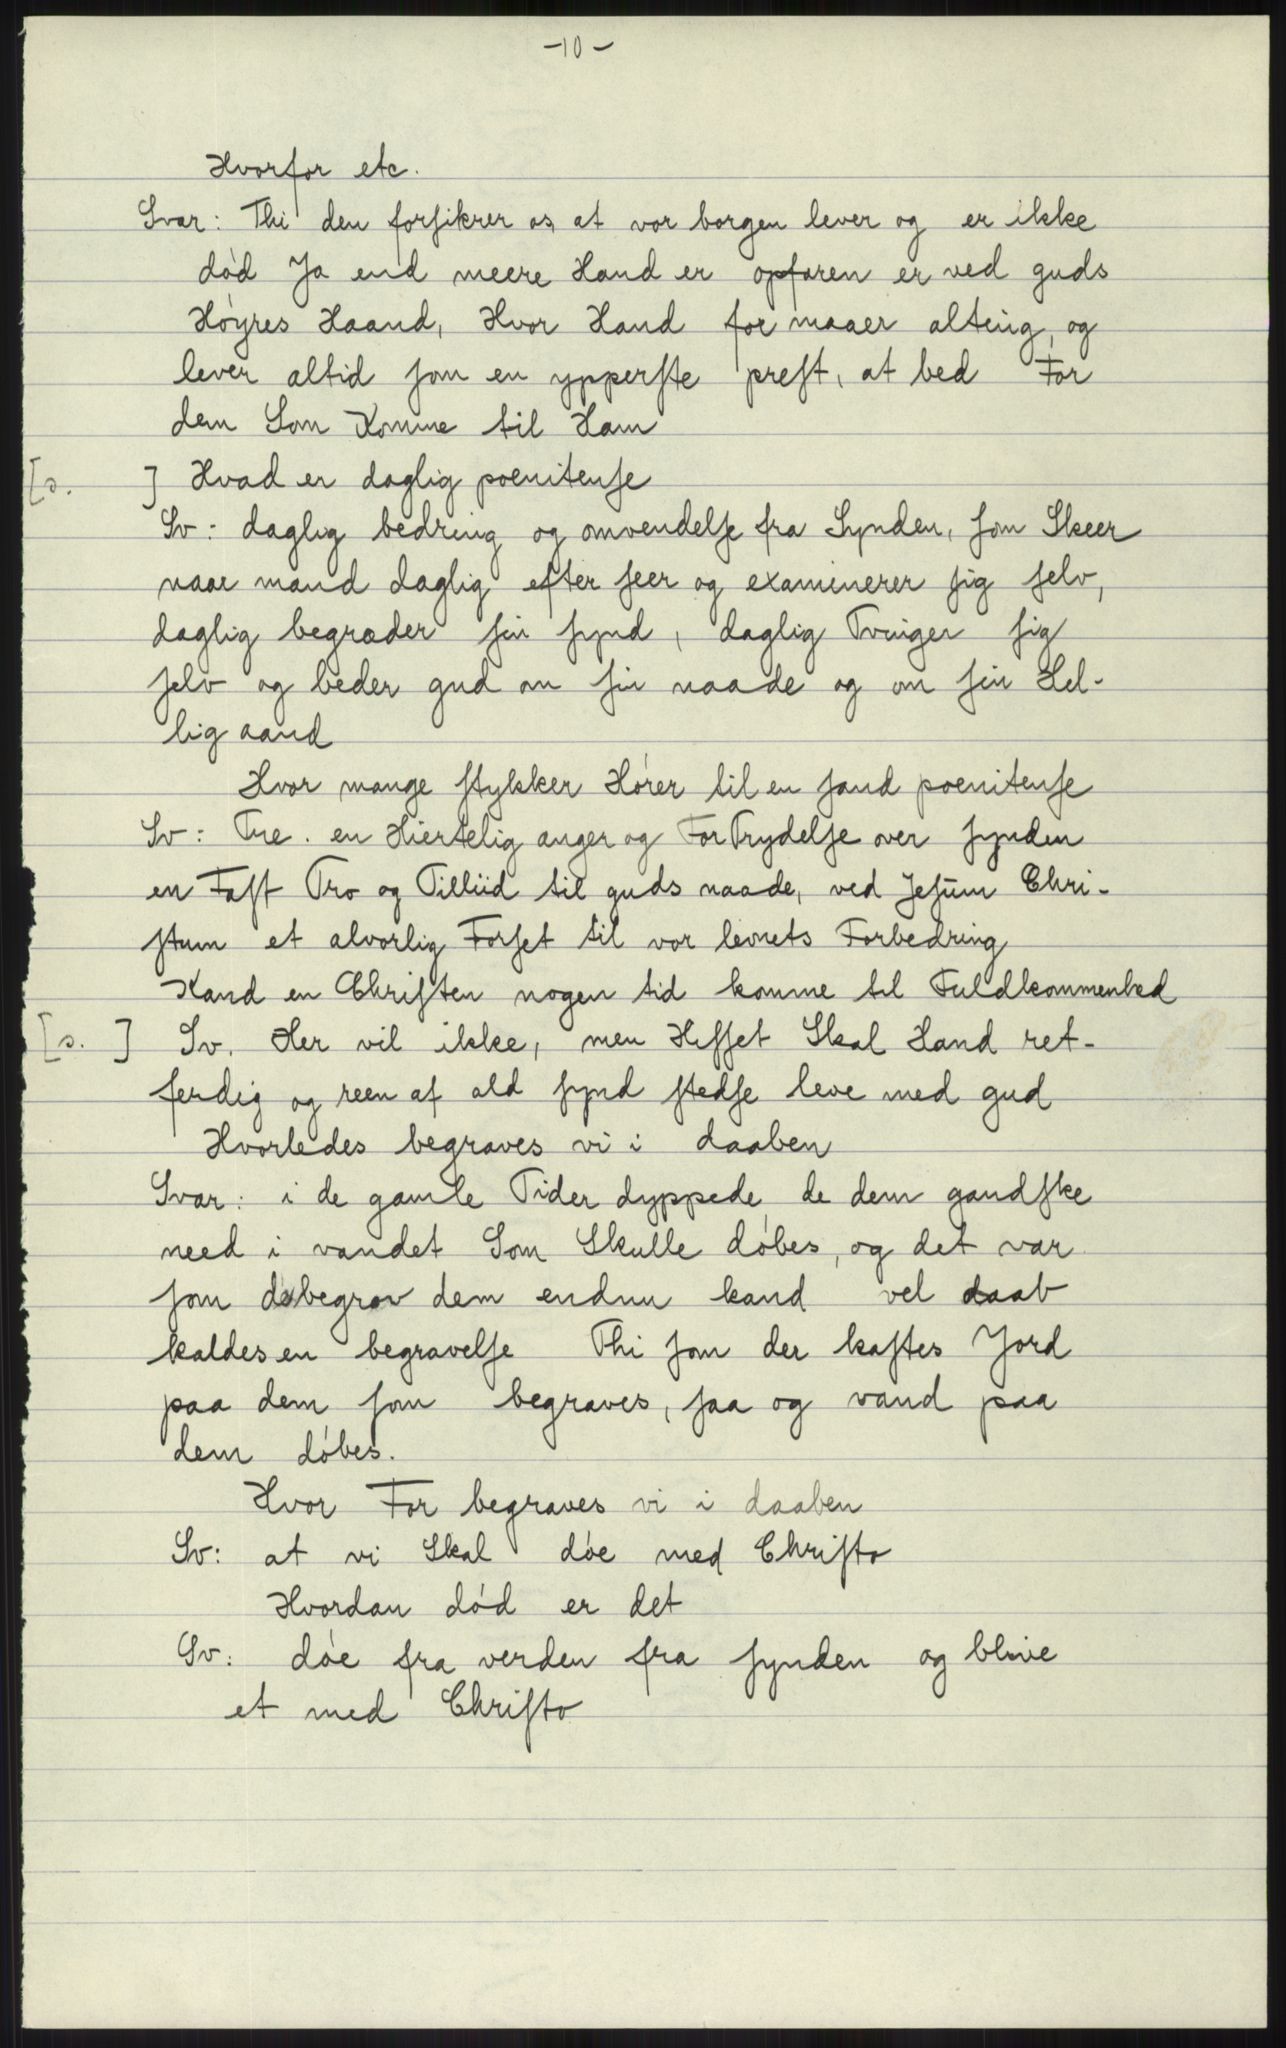 -10-
Hvorfor etc.
Svar: Thi den forsikrer os, at vor borgen lever og er ikke
død Ja end meere Hand er opfaren er ved guds
Høyres Haand, Hvor Hand for maaer alting, og
lever altid som en ypperste prest, at bed For
dem Som Komme til Ham
[s. ] Hvad er daglig poenitense
Sv: daglig bedring og omvendelse fra Synden, som Skeer
naar mand daglig efter seer og examinerer sig selv,
daglig begræder sin synd, daglig Tvinger sig
selv og beder gud om sin naade og om sin Hel-
lig aand
Hvor mange stykker Hører til en sand poenitense
Sv: Tre. en Hiertelig anger og ForTrydelse over synden
en Fast Tro og Tilliid til guds naade, ved Jesum Chri-
stum et alvorlig Forset til vor levnets Forbedring
Kand en Christen nogen tid komme til Fuldkommenhed
[s. ] Sv. Her vil ikke, men Hisset Skal Hand ret-
ferdig og reen af ald synd stedse leve med gud
Hvorledes begraves vi i daaben
Svar: i de gamle Tider dyppede de dem gandske
need i vandet Som Skulle døbes, og det var
som de begrov dem endnu kand vel daab
kaldes en begravelse Thi som der kastes Jord
paa dem som begraves, saa og vand paa
dem døbes.
Hvor For begraves vi i daaben
Sv: at vi Skal døe med Christo
Hvordan død er det
Sv: døe fra verden fra synden og blive
et med Christo